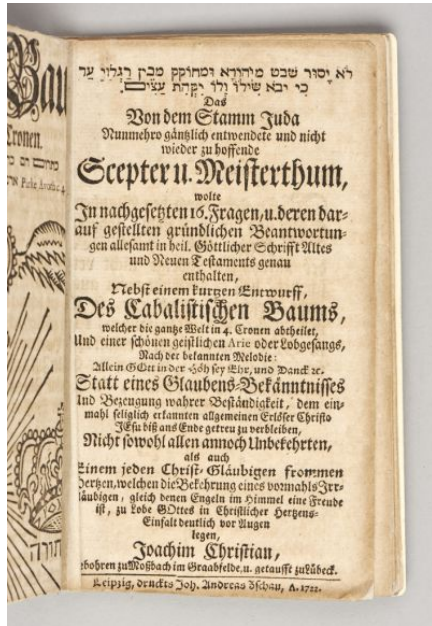 Bau
Cronen.
Pirke Avoth c. 4.
תורה
לא יסור שבט מיהודא ומחוקק מבין רגלויו עד
כי יבא שילו ולו יקהת עצים:
Das
Von dem Stamm Juda
Nunmehro gäntzlich entwendete und nicht
wieder zu hoffende
Scepter u. Meisterthum,
wolte
In nachgesetzten 16. Fragen, u. deren dar-
auf gestellten gründlichen Beantwortun-
gen allesamt in heil. Göttlicher Schrifft Altes
und Neuen Testaments genau
enthalten,
Nebst einem kurtzen Entwurff,
Des Cabalistischen Baums,
welcher die gantze Welt in 4. Cronen abtheilet,
Und einer schönen geistlichen Arie oder Lobgesangs,
Nach der bekannten Melodie:
Allein GOtt in der Höh sey Ehr, und Danck ꝛc.
Statt eines Glaubens-Bekänntnisses
Und Bezeugung wahrer Beständigkeit, dem ein-
mahl seliglich erkannten allgemeinen Erlöser Christo
JEsu biß ans Ende getreu zu verbleiben,
Nicht sowohl allen annoch Unbekehrten,
als auch
Einem jeden Christ-Gläubigen frommen
Hertzen, welchen die Bekehrung eines vormahls Irr-
gläubigen, gleich denen Engeln im Himmel eine Freude
ist, zu Lobe GOttes in Christlicher Hertzens-
Einfalt deutlich vor Augen
legen,
Joachim Christian,
gebohren zu Moßbach im Graabfelde, u. getaufft zu Lübeck.
Leipzig, druckts Joh. Andreas Zschau, A. 1722.